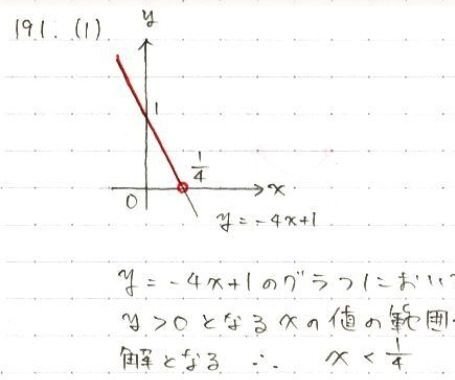 191. (1)
y
1
1/4
0
x
y = -4x+1
y = -4x+1 のグラフにおいて
y > 0 となる x の値の範囲
解となる ∴ x < 1/4